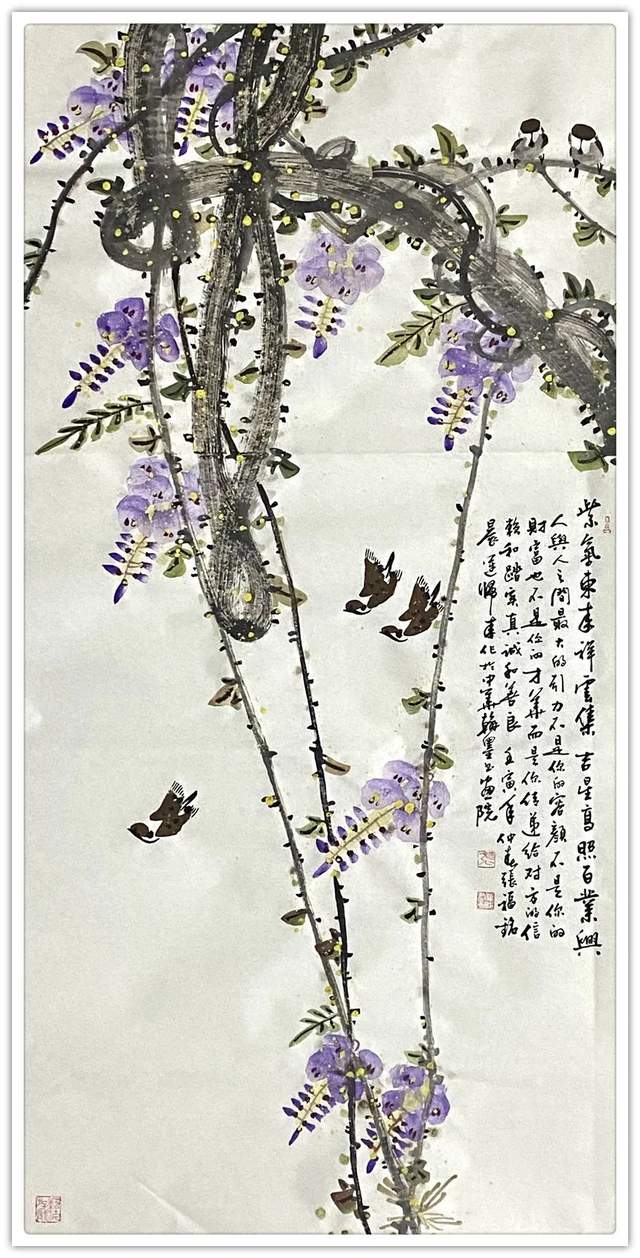 紫氣東来祥雲集 吉星高照百業興
人與人之間最大的引力不是你的容顏不是你的
財富也不是你的才華而是你傳遞給對方的信
賴和踏實真誠和善良 壬寅年仲春張福銘
晨運歸来作於中華翰墨書畫院